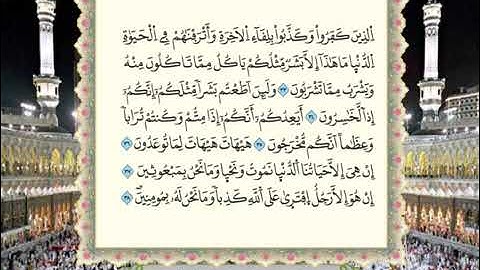 اَ۬لذِينَ كَفَرُواْ وَكَذَّبُواْ بِلِقَآءِ اِ۬لَاخِرَةِ وَأَتْرَفْنَٰهُمْ فِے اِ۬لْحَيَوٰةِ
اِ۬لدُّنْيَا مَا هَٰذَآ إِلَّا بَشَرٞ مِّثْلُكُمْ يَاكُلُ مِمَّا تَاكُلُونَ مِنْهُ
وَيَشْرَبُ مِمَّا تَشْرَبُونَ ٣٣ وَلَئِنَ اَطَعْتُم بَشَراٗ مِّثْلَكُمُۥٓ إِنَّكُمُۥٓ
إِذاٗ لَّخَٰسِرُونَ ٣٤ أَيَعِدُكُمُۥٓ أَنَّكُمُۥٓ إِذَا مِتُّمْ وَكُنتُمْ تُرَاباٗ
وَعِظَٰماً اَنَّكُم مُّخْرَجُونَ ٣٥ هَيْهَاتَ هَيْهَاتَ لِمَا تُوعَدُونَ ٣٦
إِنْ هِيَ إِلَّا حَيَاتُنَا اَ۬لدُّنْيَا نَمُوتُ وَنَحْيَا وَمَا نَحْنُ بِمَبْعُوثِينَ ٣٧
إِنْ هُوَ إِلَّا رَجُلٌ اِ۪فْتَر۪ىٰ عَلَى اَ۬للَّهِ كَذِباٗ وَمَا نَحْنُ لَهُۥ بِمُومِنِينَۖ ٣٨